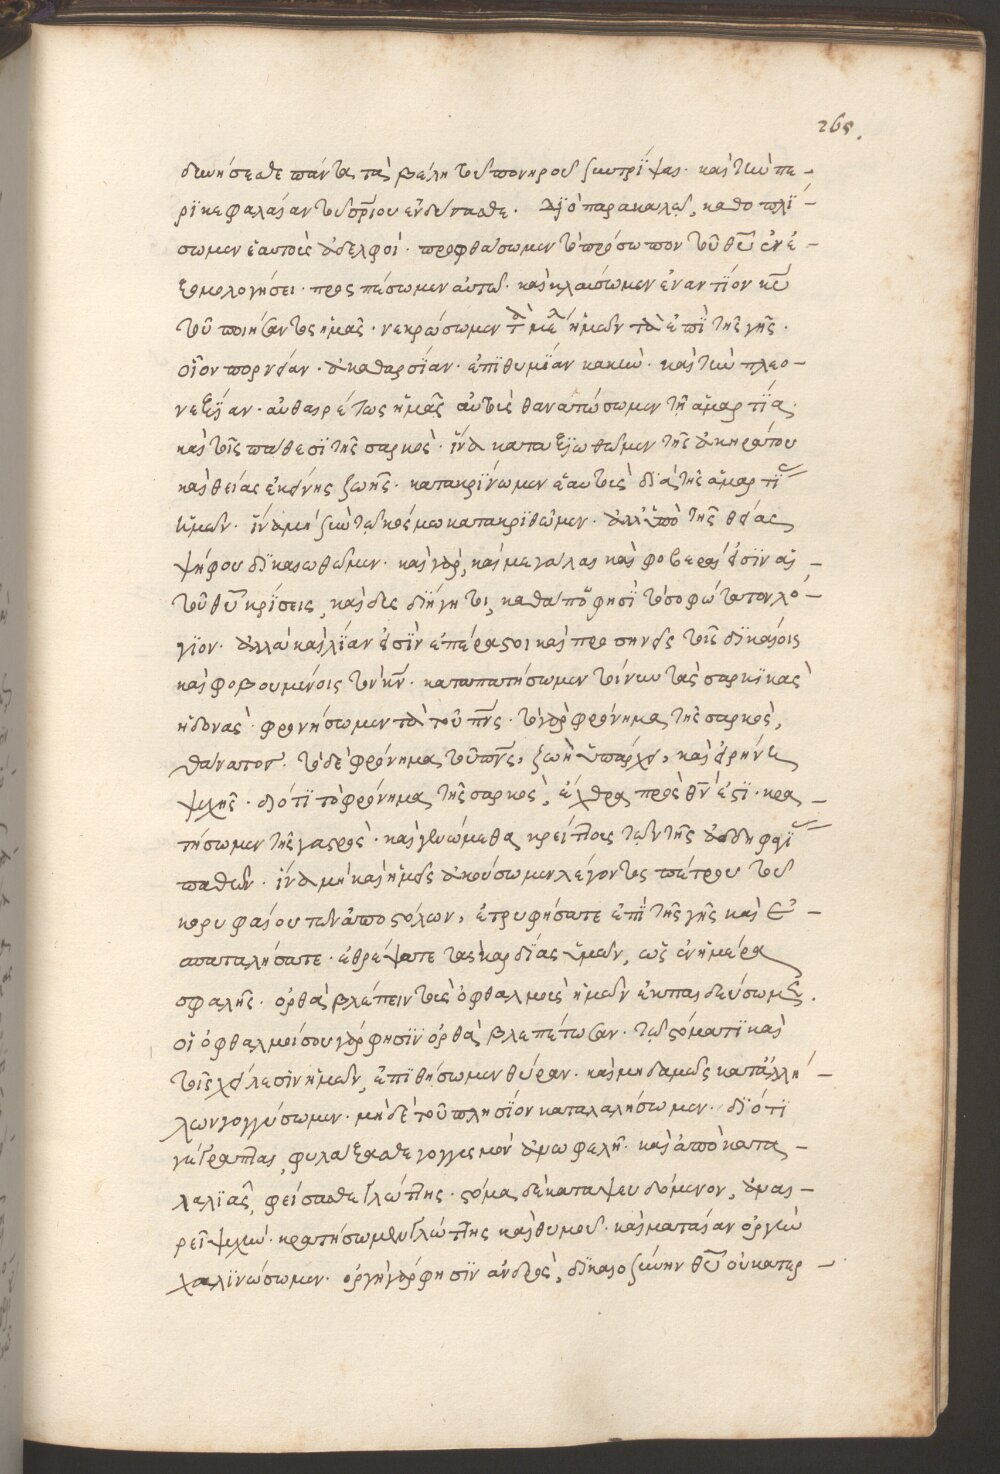 265.
δυνήσεσθε πάντα τὰ βέλη τοῦ πονηροῦ συντρίψαι. καὶ τὴν πε-
ρικεφαλαίαν τοῦ σρίου ἐνδύσασθε. Διὸ παρακαλῶ, καθοπλί-
σωμεν ἑαυτοὺς ἀδελφοί. προφθάσωμεν τὸ πρόσωπον τοῦ θυ ἐν ἐ-
ξομολογήσει. προσπέσωμεν αὐτῷ. καὶ κλαύσωμεν ἐναντίον κυ
τοῦ ποιήσαντος ἡμᾶς. νεκρώσωμεν τὰ μέλη ἡμῶν τὰ ἐπὶ τῆς γῆς.
οἷον πορνείαν. ἀκαθαρσίαν. ἐπιθυμίαν κακὴν. καὶ τὴν πλεο-
νεξίαν. αὐθαιρέτως ἡμᾶς αὐτοὺς θανατώσωμεν τῇ ἁμαρτίᾳ
καὶ τοῖς πάθεσι τῆς σαρκὸς. ἵνα καταξιωθῶμεν τῆς ἀκηράτου
καὶ θείας ἐκείνης ζωῆς. κατακρίνωμεν ἑαυτοὺς διὰ τῆς ἁμαρτί
ἡμῶν. ἵνα μὴ σὺν τῷ κόσμω κατακριθῶμεν. ἀλλ' ὑπὸ τῆς θείας
ψήφου δικαιωθῶμεν. καὶ γὰρ, καὶ μεγάλαι καὶ φοβεραὶ εἰσὶν αἱ
τοῦ θυ κρίσεις, καὶ δυσδιήγητοι, καθάπερ φησὶ τὸ σοφώτατον λό-
γιον. ἀλλὰ καὶ λίαν εἰσὶν ἐπέραστοι καὶ προσηνεῖς τοῖς δικαίοις
καὶ φοβουμένοις τὸν κν. καταπατήσωμεν τοίνυν τὰς σαρκικὰς
ἡδονὰς. φρονήσωμεν τὰ τοῦ πνς. τὸ γὰρ φρόνημα τῆς σαρκὸς,
θάνατος. τὸ δὲ φρόνημα τοῦ πνς, ζωὴ ὑπάρχει, καὶ εἰρήνη
ψυχῆς. διότι τὸ φρόνημα τῆς σαρκὸς, ἔχθρα πρὸς θν ἐστι. κρα-
τήσωμεν τῆς γαστρὸς. καὶ γενώμεθα κρείττους τῶν τῆς ἀδδηφαγί
παθῶν. ἵνα μὴ καὶ ἡμεῖς ἀκούσωμεν λέγοντος πέτρου τοῦ
κορυφαίου τῶν ἀποστόλων, ἐτρυφήσατε ἐπὶ τῆς γῆς καὶ ἐ-
σπαταλήσατε. ἐθρέψατε τὰς καρδίας ὑμῶν, ὡς ἐν ἡμέρα
σφαγῆς. ὀρθὰ βλέπειν τοὺς ὀφθαλμοὺς ἡμῶν ἐκπαιδεύσωμεν.
οἱ ὀφθαλμοί σου γὰρ φησὶν ὀρθὰ βλεπέτωσαν. τῷ στόματι καὶ
τοῖς χείλεσιν ἡμῶν, ἐπιθήσωμεν θύραν. καὶ μηδαμῶς κατ' ἀλλή-
λων γογγύσωμεν. μηδὲ τοῦ πλησίον καταλαλήσωμεν. διότι
γέγραπται, φυλάξασθε γογγυσμὸν ἀνωφελῆ. καὶ ἀπὸ κατα-
λαλιᾶς, φείσασθε γλώττης. στόμα δὲ καταψευδόμενον, ἀναι-
ρεῖ ψυχὴν. κρατήσωμεν γλώττης καὶ θυμοῦ. καὶ ματαίαν ὀργὴν
χαλινώσωμεν. ὀργὴ γὰρ φησὶν ἀνδρὸς, δικαιοσύνην θυ οὐ κατερ-